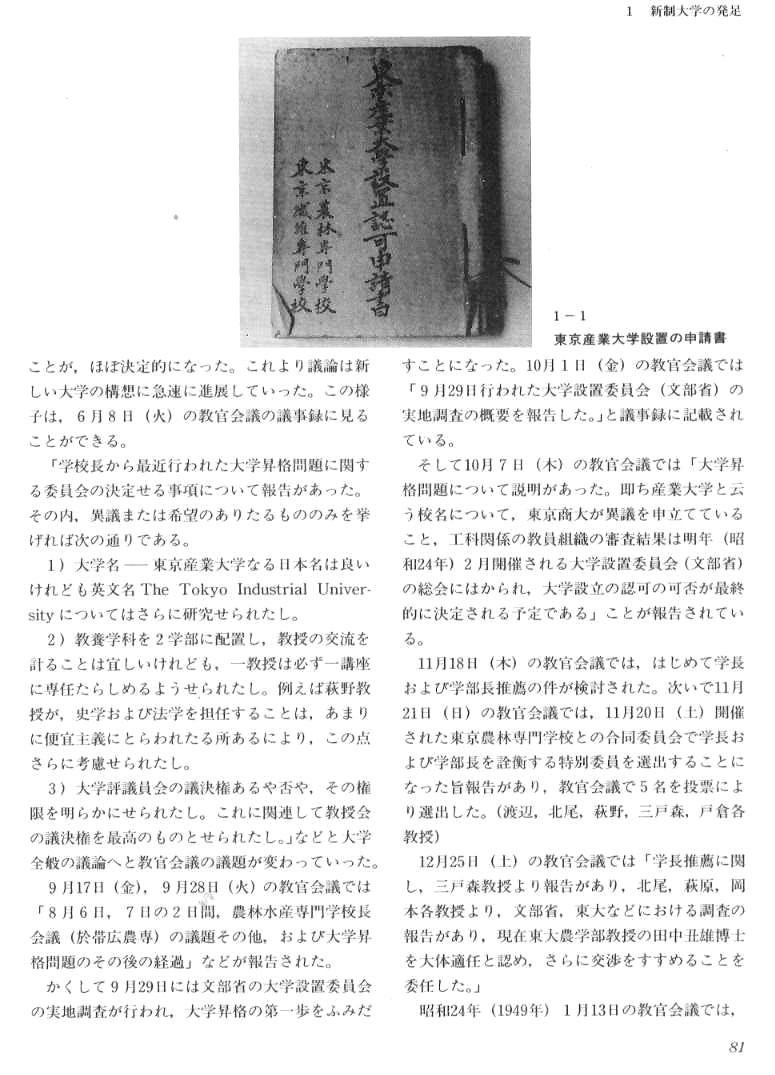 1 新制大学の発足
東京産業大學設置認可申請書
東京農林専門學校
東京繊維専門學校
1－1
東京産業大学設置の申請書
ことが，ほぼ決定的になった。これより議論は新
しい大学の構想に急速に進展していった。この様
子は，６月８日（火）の教官会議の議事録に見る
ことができる。
「学校長から最近行われた大学昇格問題に関す
る委員会の決定せる事項について報告があった。
その内，異議または希望のありたるもののみを挙
げれば次の通りである。
１）大学名 ── 東京産業大学なる日本名は良い
けれども英文名 The Tokyo Industrial Univer-
sity についてはさらに研究せられたし。
２）教養学科を２学部に配置し，教授の交流を
計ることは宜しいけれども，一教授は必ず一講座
に専任たらしめるようせられたし。例えば萩野教
授が，史学および法学を担任することは，あまり
に便宜主義にとらわれたる所あるにより，この点
さらに考慮せられたし。
３）大学評議員会の議決権あるや否や，その権
限を明らかにせられたし。これに関連して教授会
の議決権を最高のものとせられたし。」などと大学
全般の議論へと教官会議の議題が変わっていった。
９月17日（金），９月28日（火）の教官会議では
「８月６日，７日の２日間，農林水産専門学校長
会議（於帯広農専）の議題その他，および大学昇
格問題のその後の経過」などが報告された。
かくして９月29日には文部省の大学設置委員会
の実地調査が行われ，大学昇格の第一歩をふみだ
すことになった。10月１日（金）の教官会議では
「９月29日行われた大学設置委員会（文部省）の
実地調査の概要を報告した。」と議事録に記載され
ている。
そして10月７日（木）の教官会議では「大学昇
格問題について説明があった。即ち産業大学と云
う校名について，東京商大が異議を申立てている
こと，工科関係の教員組織の審査結果は明年（昭
和24年）２月開催される大学設置委員会（文部省）
の総会にはかられ，大学設立の認可の可否が最終
的に決定される予定である」ことが報告されてい
る。
11月18日（木）の教官会議では，はじめて学長
および学部長推薦の件が検討された。次いで11月
21日（日）の教官会議では，11月20日（土）開催
された東京農林専門学校との合同委員会で学長お
よび学部長を詮衡する特別委員を選出することに
なった旨報告があり，教官会議で５名を投票によ
り選出した。（渡辺，北尾，萩野，三戸森，戸倉各
教授）
12月25日（土）の教官会議では「学長推薦に関
し，三戸森教授より報告があり，北尾，萩原，岡
本各教授より，文部省，東大などにおける調査の
報告があり，現在東大農学部教授の田中丑雄博士
を大体適任と認め，さらに交渉をすすめることを
委任した。」
昭和24年（1949年）１月13日の教官会議では，
81